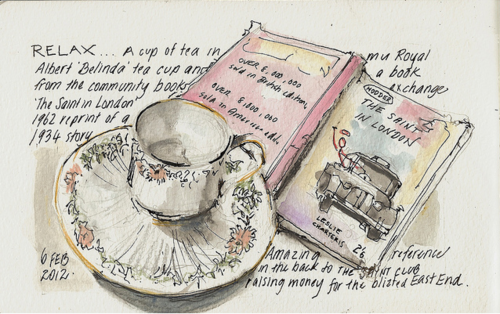 RELAX... A cup of tea in my Royal
Albert 'Belinda' tea cup and a book
from the community book exchange
'The Saint in London'
1962 reprint of a
1934 story
OVER 8,000,000
sold in British edition
OVER 8,000,000
sold in American eds.
HODDER
THE SAINT
IN LONDON
LESLIE
CHARTERIS
2/6
6 FEB
2012.
Amazing reference
in the back to THE SAINT CLUB
raising money for the blitzed East End.